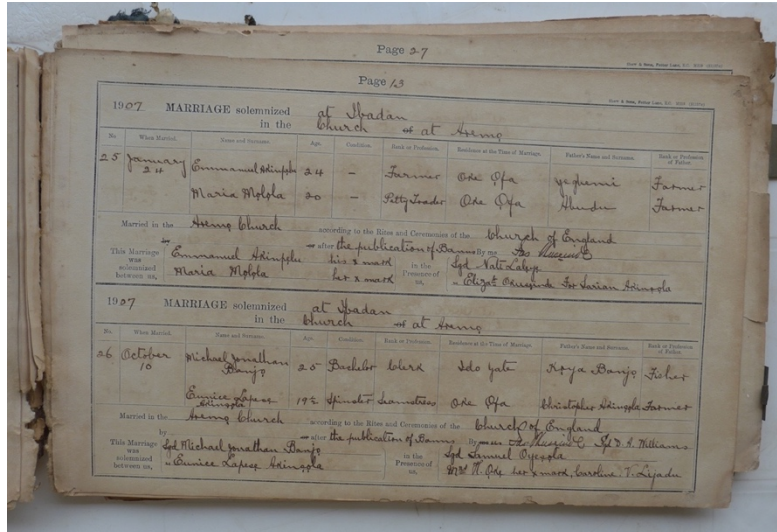 Page 27
Page 13
1907 MARRIAGE solemnized at Ibadan
in the Church of at Aremo
No. When Married. Name and Surname. Age. Condition. Rank or Profession. Residence at the Time of Marriage. Father's Name and Surname. Rank or Profession of Father.
25 January 24 Emmanuel 24 – Farmer Oke Ofa Farmer
Maria Molola 20 – Petty Trader Oke Ofa Abudu Farmer
Married in the Aremo Church according to the Rites and Ceremonies of the Church of England
by or after the publication of Banns By me
This Marriage was solemnized between us, Emmanuel his x mark in the Presence of us, Sgd
Maria Molola her x mark
1907 MARRIAGE solemnized at Ibadan
in the Church of at Aremo
No. When Married. Name and Surname. Age. Condition. Rank or Profession. Residence at the Time of Marriage. Father's Name and Surname. Rank or Profession of Father.
26 October 10 Michael Jonathan Banjo 25 Bachelor Clerk Ido Gate Koya Banjo Fisher
Eunice Lapese Akinsola 19½ Spinster Seamstress Oke Ofa Christopher Akinsola Farmer
Married in the Aremo Church according to the Rites and Ceremonies of the Church of England
by or after the publication of Banns By me Sgd D. A. Williams
This Marriage was solemnized between us, Sgd Michael Jonathan Banjo in the Presence of us, Sgd Samuel Oyesola
" Eunice Lapese Akinsola Oke her x mark, Caroline V. Lijadu